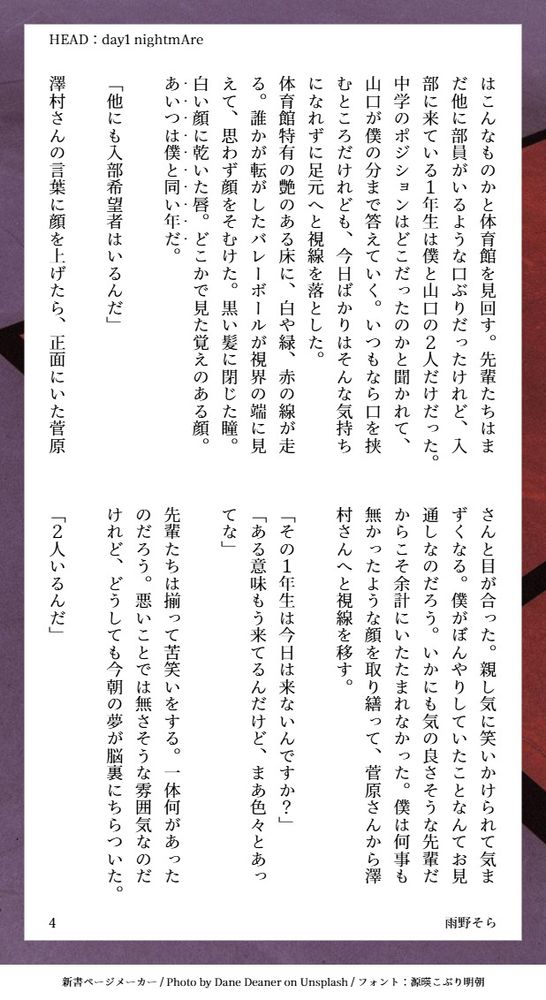 HEAD：day1 nightmAre
はこんなものかと体育館を見回す。先輩たちはま
だ他に部員がいるような口ぶりだったけれど、入
部に来ている１年生は僕と山口の２人だけだった。
中学のポジションはどこだったのかと聞かれて、
山口が僕の分まで答えていく。いつもなら口を挟
むところだけれども、今日ばかりはそんな気持ち
になれずに足元へと視線を落とした。
体育館特有の艶のある床に、白や緑、赤の線が走
る。誰かが転がしたバレーボールが視界の端に見
えて、思わず顔をそむけた。黒い髪に閉じた瞳。
白い顔に乾いた唇。どこかで見た覚えのある顔。
あいつは僕と同い年だ。
「他にも入部希望者はいるんだ」
澤村さんの言葉に顔を上げたら、正面にいた菅原
さんと目が合った。親し気に笑いかけられて気ま
ずくなる。僕がぼんやりしていたことなんてお見
通しなのだろう。いかにも気の良さそうな先輩だ
からこそ余計にいたたまれなかった。僕は何事も
無かったような顔を取り繕って、菅原さんから澤
村さんへと視線を移す。
「その１年生は今日は来ないんですか？」
「ある意味もう来てるんだけど、まあ色々とあっ
てな」
先輩たちは揃って苦笑いをする。一体何があった
のだろう。悪いことでは無さそうな雰囲気なのだ
けれど、どうしても今朝の夢が脳裏にちらついた。
「２人いるんだ」
4
雨野そら
新書ページメーカー / Photo by Dane Deaner on Unsplash / フォント：源暎こぶり明朝